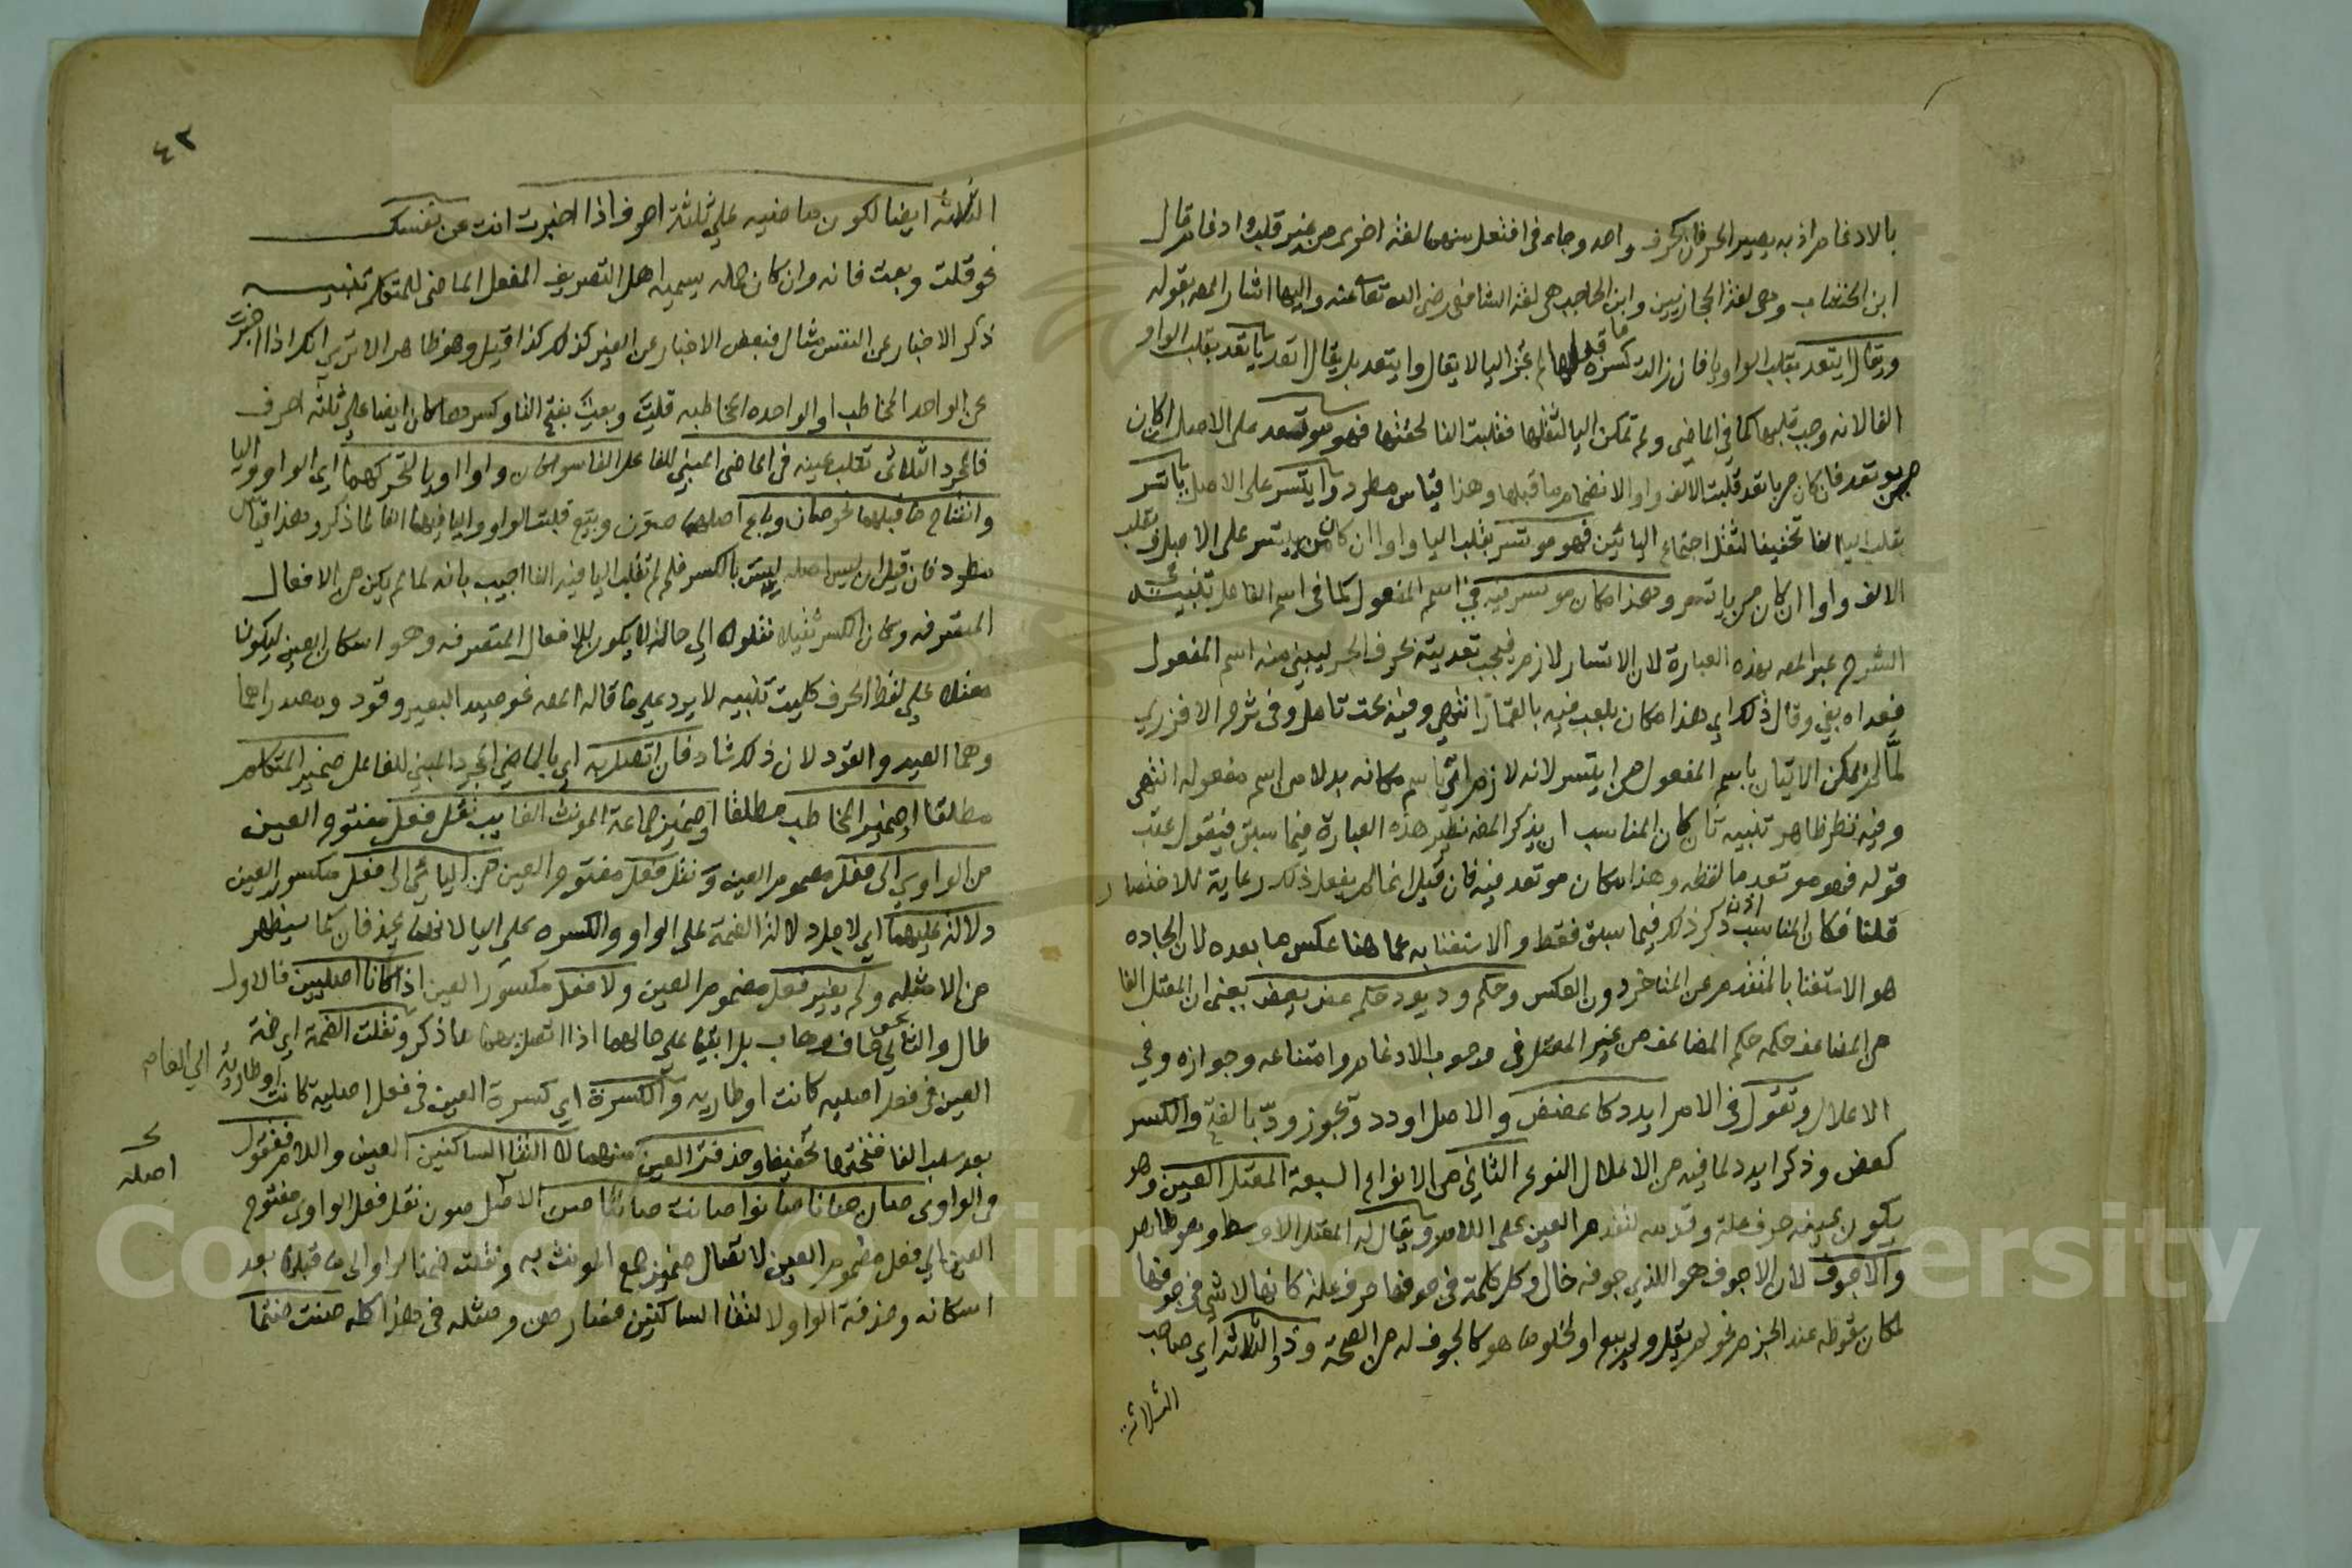 بالادغام اذ به يصير الحرفان كحرف واحد وجاء في افتعل منهما لغة اخرى من غير قلب وادغام قال
ابن الخشاب وهى لغة الحجازيين وابن الحاجب هى لغة الشافعى رضى الله تعا عنه واليها اشار المصـ بقوله
ويقال ايتعد بقلب الواو يا فان زالت كسرة ما قبلها لم تجز اليا لا يقال وايتعد بل يقال اتعد ياتعد بقلب الواو
الفا لانه وجب قلبها كما في الماضي ولم تمكن اليا لثقلها فقلبت الفا لخفتها فهو موتعد على الاصل ان كان
من يوتعد فان كان من ياتعد قلبت الالف واوا لانضمام ما قبلها وهذا قياس مطرد وايتسر على الاصل ياتسر
بقلب اليا الفا تخفيفا لثقل اجتماع اليائين فهو موتسر بقلب اليا واوا ان كان من ييتسر على الاصل وبقلب
الالف واوا ان كان من ياتسر وهذا مكان موتسر فيه في اسم المفعول كما في اسم الفاعل تنبيه
الشرح عبر المصـ بهذه العبارة لان الاتسار لازم فيجب تعديته بحرف الجر ليبنى منه اسم المفعول
فعداه بفي وقال ذلك اي هذا مكان يلعب فيه بالقمار انتهى وفيه بحث تامل وفى شرح الافزري
لما لم يمكن الاتيان باسم المفعول من ايتسر لانه لازم اتى باسم مكانه بدلا من اسم مفعوله انتهى
وفيه نظر ظاهر تنبيه ثان كان المناسب ان يذكر المصـ نظير هذه العبارة فيما سبق فيقول عقب
قوله فهو موتعد ما لفظه وهذا مكان موتعد فيه فان قيل انما لم يفعل ذلك رعاية للاختصار
قلنا فكان المناسب اذن ذكر ذلك فيما سبق فقط والاستغنا به عما هنا عكس ما بعده لان الجاده
هو الاستغنا بالمتقدم عن المتاخر دون العكس وحكم ود يود حكم عض يعض يعنى ان المعتل الفا
من المضاعف حكمه حكم المضاعف من غير المعتل فى وجوب الادغام وامتناعه وجوازه وفي
الاعلال وتقول فى الامر ايدد كاعضض والاصل اودد وتجوز ودّ بالفتح والكسر
كعض وذكر ايدد لما فيه من الاعلال النوع الثاني من الانواع السبعة المعتل العين وهو
يكون عينه حرف علة وقدمه لتقدم العين على اللام ويقال له المعتل الاوسط وهو ظاهر
والاجوف لان الاجوف هو الذي جوفه خال وكل كلمة في جوفها حرف علة كانها لا شي في جوفها
لمكان سقوطه عند الجزم نحو لم يقل ولم يبع او لخلو ما هو كالجوف له من الصحة وذو الثلاثة اي صاحب
الثلاثة
٤٢
الثلاثه ايضا لكون ماضيه على ثلثة احرف اذا اخبرت انت عن نفسك
نحو قلت وبعت فانه وان كان جملة يسميه اهل التصريف الفعل الماضى للمتكلم تنبيه
ذكر الاخبار عن النفس مثال فبعض الاخبار عن الغير كذلك كذا قيل وهو ظاهر الا ترى انك اذا اخبرت
عن الواحد المخاطب او الواحده المخاطبه قلت وبعت بفتح التا وكسرها كان ايضا على ثلثة احرف
فالمجرد الثلاثى تقلب عينه فى الماضى المبني للفاعل الفا سوا كان واوا او يا لتحركهما اي الواو واليا
وانفتاح ما قبلهما نحو صان وباع اصلهما صون وبيع قلبت الواو واليا فيهما الفا لما ذكر وهذا قياس
مطرد فان قيل ان ليس اصله ليس بالكسر فلم لم تقلب اليا فيه الفا اجيب بانه لما لم يكن من الافعال
المتصرفه وكان الكسر ثقيلا نقلوه الى حالة لا يكون للافعال المتصرفه وهو اسكان العين ليكون
مثله على لفظ الحرف كليت تنبيه لا يرد على ما قاله المصـ نحو صيد البعير وقود ومصدراهما
وهما الصيد والقود لان ذلك شاذ فان اتصل به اى بالماضي المجرد المبني للفاعل ضمير المتكلم
مطلقا او ضمير المخاطب مطلقا او ضمير جماعة المونث الغايب نقل فعل مفتوح العين
من الواوي الى فعل مضموم العين ونقل فعل مفتوح العين من اليائي الى فعل مكسور العين
دلالة عليهما اي لاجل دلالة الضمة على الواو والكسره على اليا لانهما يحذفان كما سيظهر
من الامثله ولم يغير فعل مضموم العين ولا فعل مكسور العين اذا كانا اصليين فالاول نحو
طال والثاني خاف وهاب بل ابقيا على حالهما اذا اتصل بهما ما ذكر ونقلت الضمة اي ضمة
العين فى فعل اصليه كانت او طاريه والكسرة اي كسرة العين فى فعل اصلية كانت او طارية الى الفا صح
بعد سلب الفا فتحتها تخفيفا وحذفت العين منهما لالتقا الساكنين العين واللام فتقول
فى الواوى صان صانا صانوا صانت صانتا صن الاصل صون نقل فعل الواوى مفتوح
صـ اصله
العين الى فعل مضموم العين لاتصال ضمير جمع المونث به ونقلت ضمة الواو الى ما قبلها بعد
اسكانه وحذفت الواو لالتقا الساكنين فصار صن ومثله فى هذا كله صنت صنتما